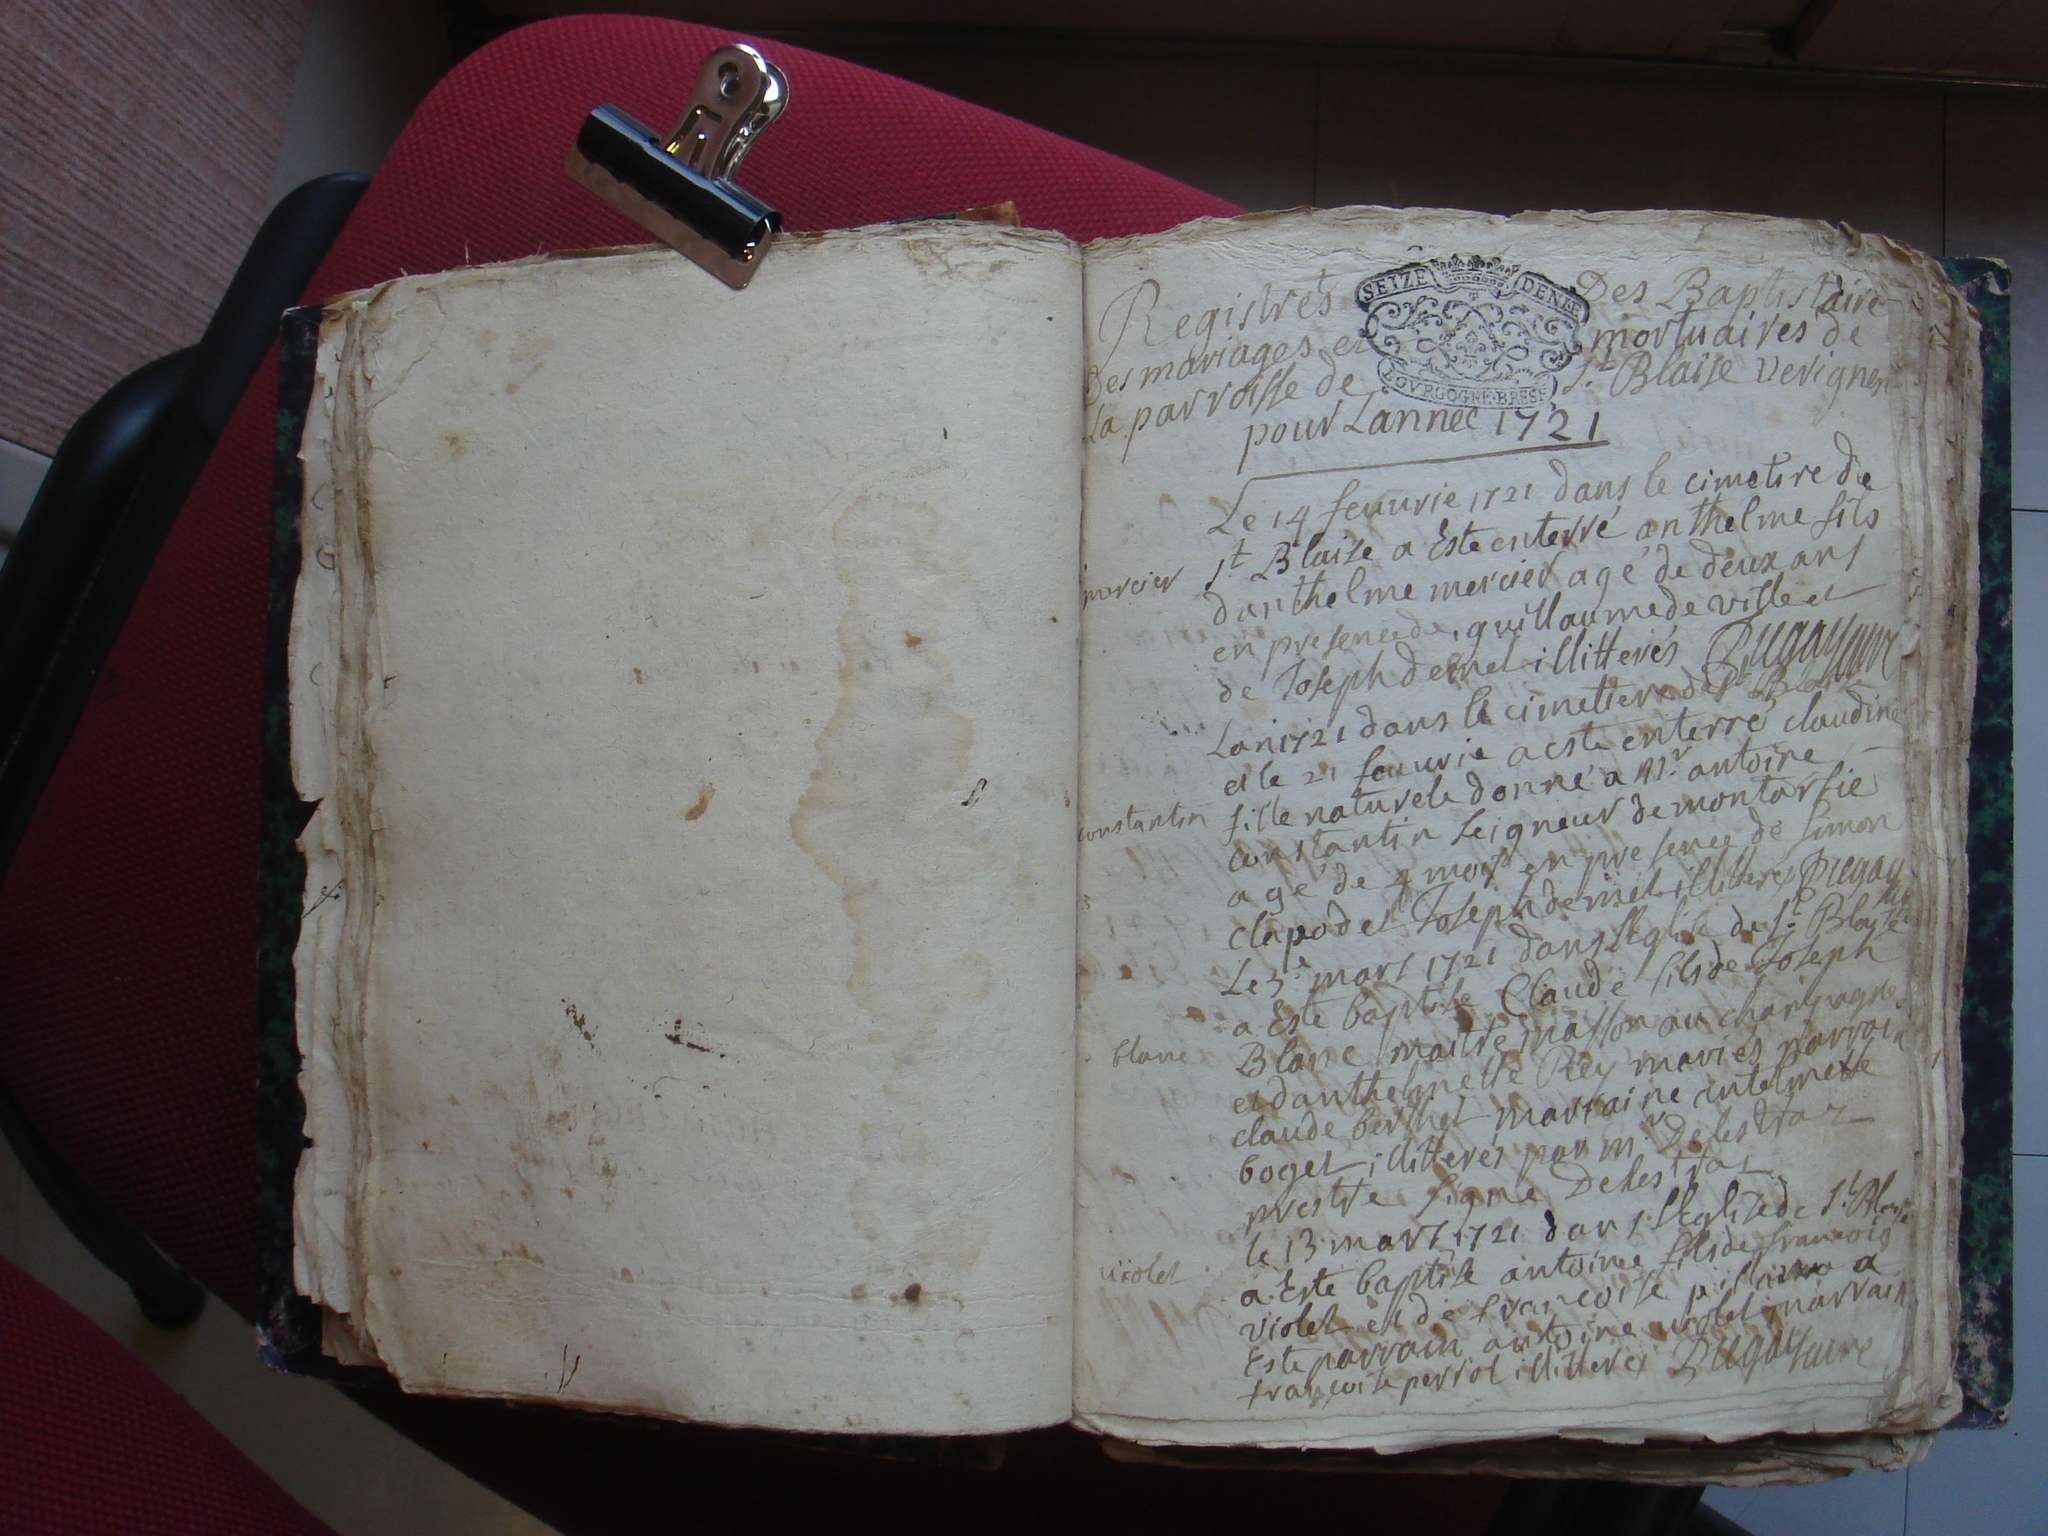 SEIZE DENIE
Registres Des Baptistaire
Des mariages et mortuaires de
La parroisse de St Blaise verignes
BOVRGOGNE·BRESE
pour Lannee 1721
Le 14 feuurie 1721 dans le cimetire de
mercier St Blaise a Este enterré anthelme fils
danthelme mercier agé de deux ans
en presence de guillaume de ville et
de Joseph dernet illitterés Dugay cure
Lan 1721 dans le cimetiere de St Blaise
et le 21 feuurie a este enterré claudine
fille naturele donné a Mr antoine
constantin constantin seigneur de montarfie
agé de mois en presence de simon
clapod et Joseph dernet illitteres Dugay
Le 3e mars 1721 dans Leglise de St Blaise
a Este baptise Claude fils de Joseph
blanc Blanc maitre masson au champagne
et danthelmette Rey mariés parrain
claude berthet marraine antelmette
boget illitterés par mr Delestraz
prestre signe Delestraz
le 13 mars 1721 dans Leglise de St Blaise
violet a Este baptise antoine fils de francois
violet et de francoise a
Este parrain antoine violet marrain
francoise perrot illitteres Dugay cure